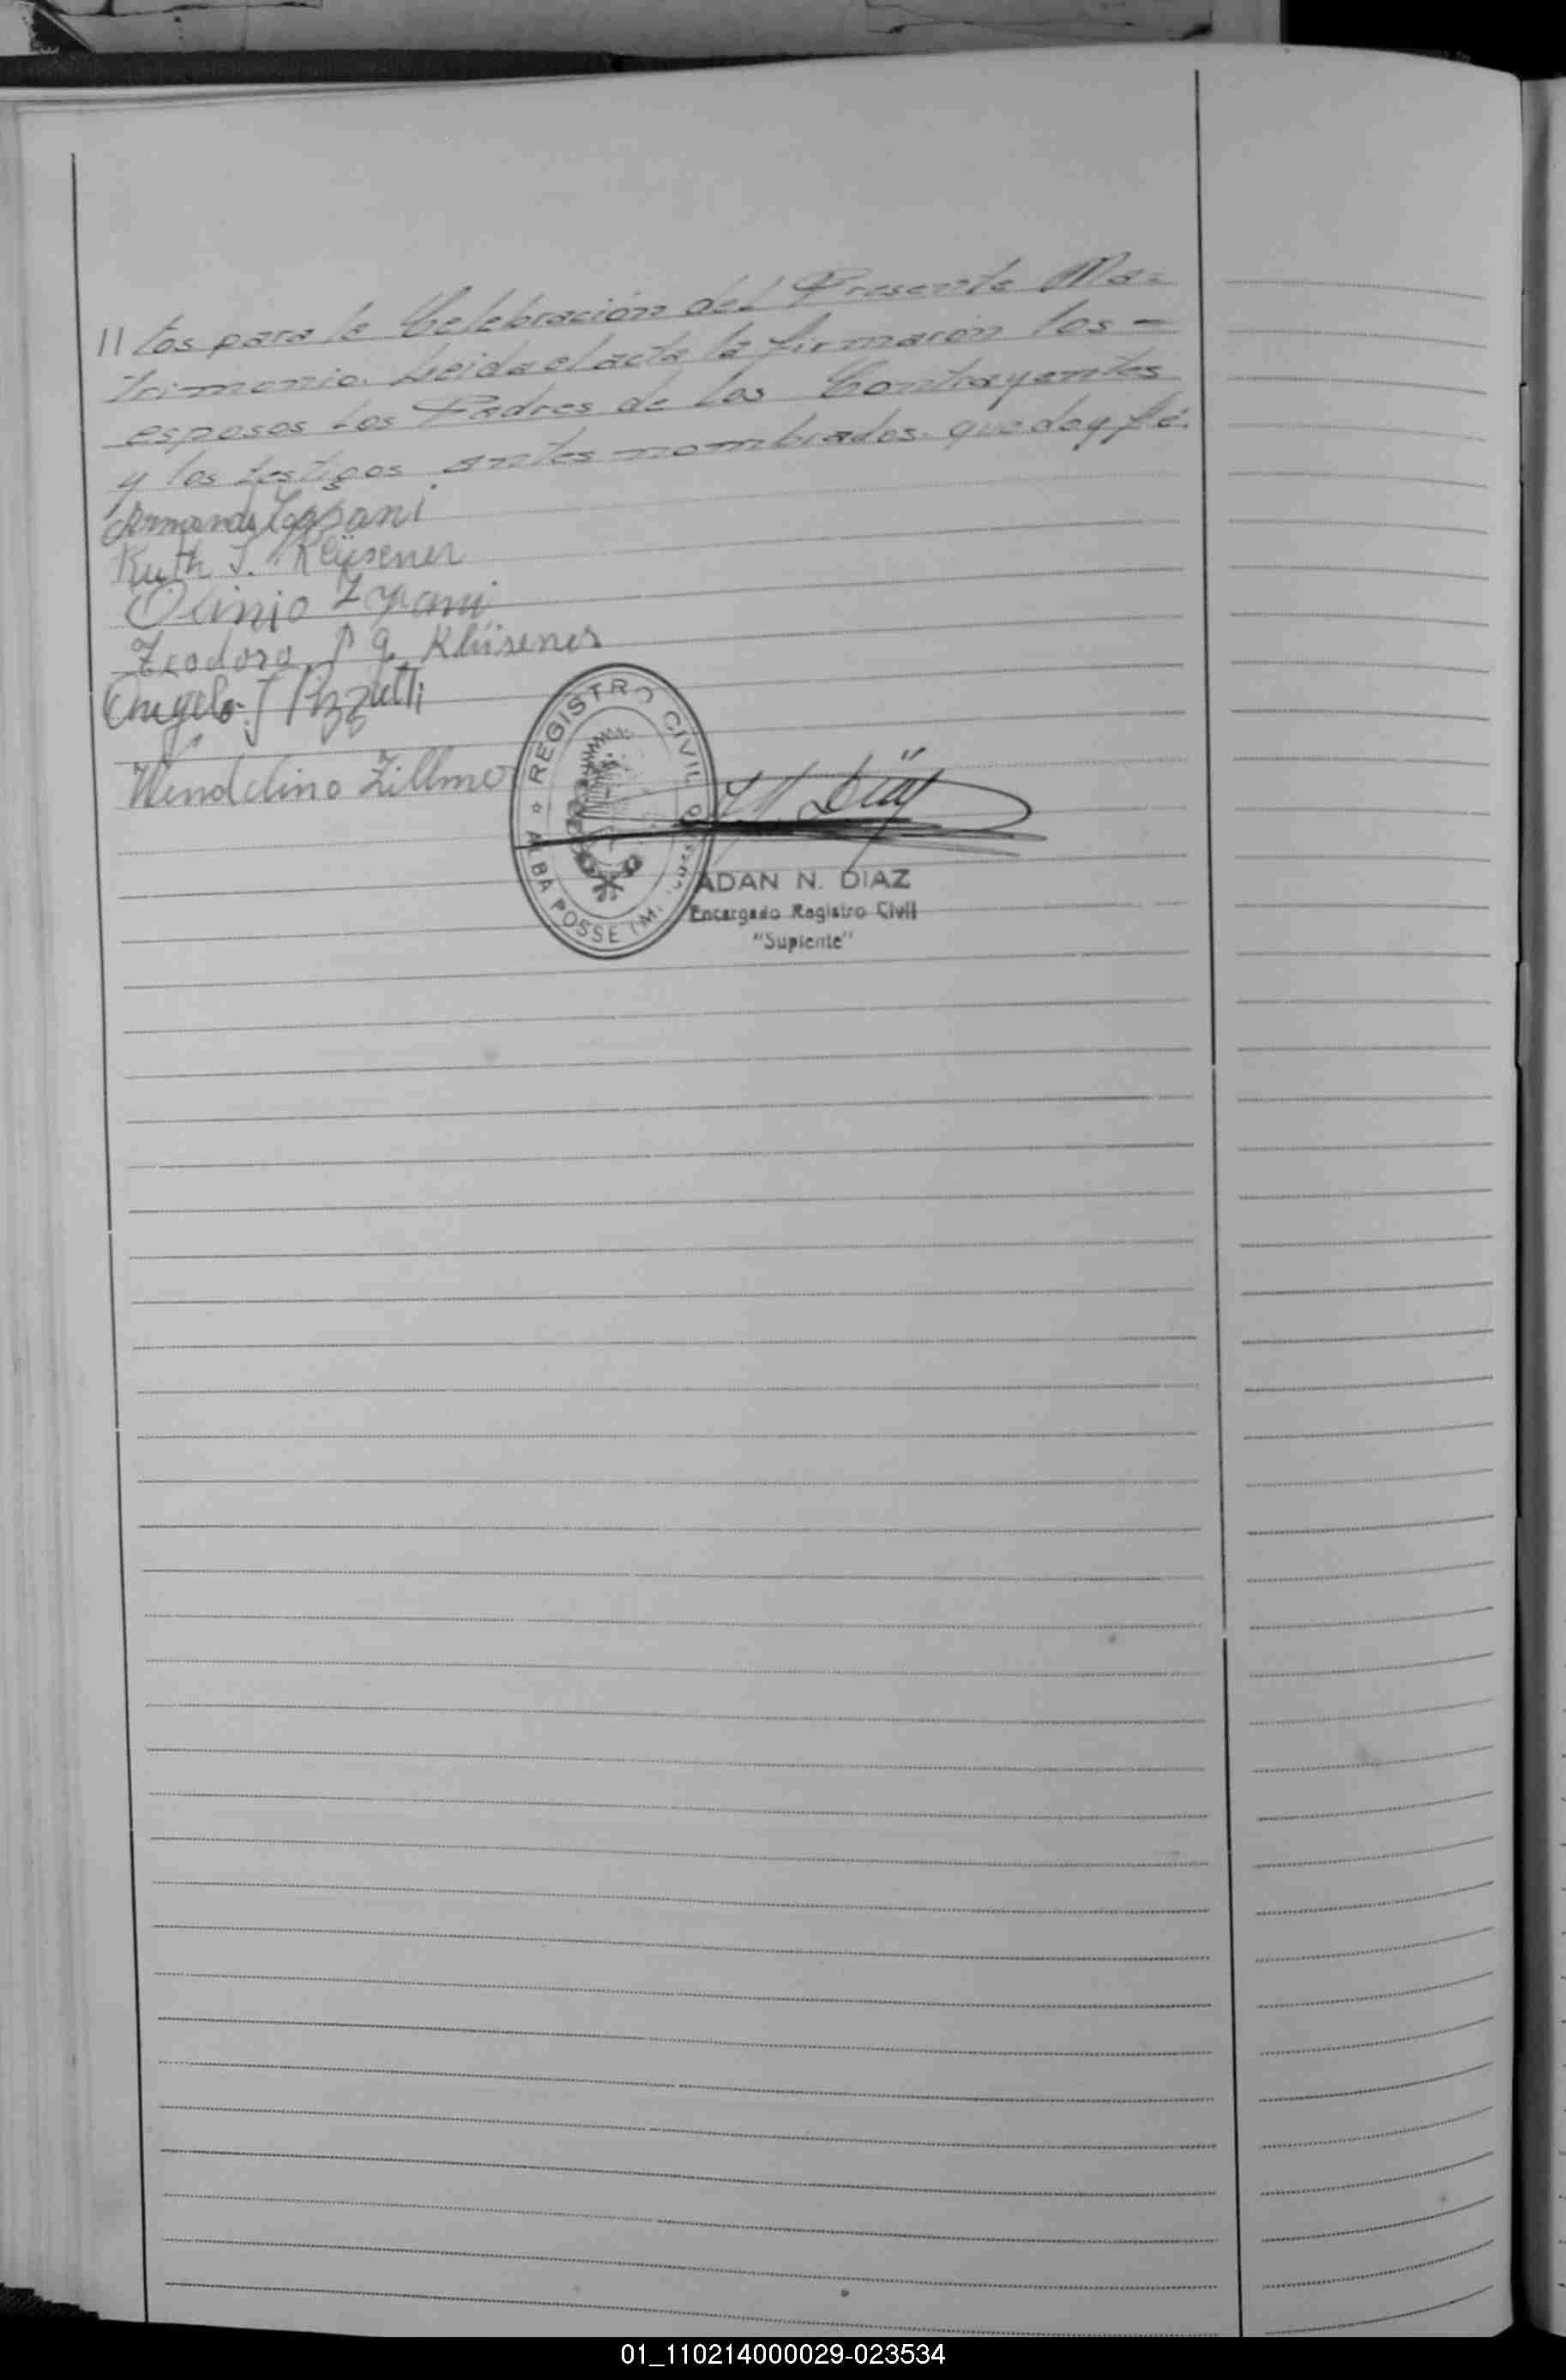 // tos para la Celebración del Presente Ma=
trimonio. Leida el acta la firmaron los =
esposos los Padres de los Contrayentes
y los testigos antes nombrados. que doy fé.
Armando
Ruth I. Klüsener
Olinio
Teodoro P G. Klüsener
Angelo J Pizzutti
Wendelino Zillmer
REGISTRO CIVIL
ALBA POSSE (M.
Díaz
ADAN N. DIAZ
Encargado Registro Civil
"Suplente"
01_110214000029-023534